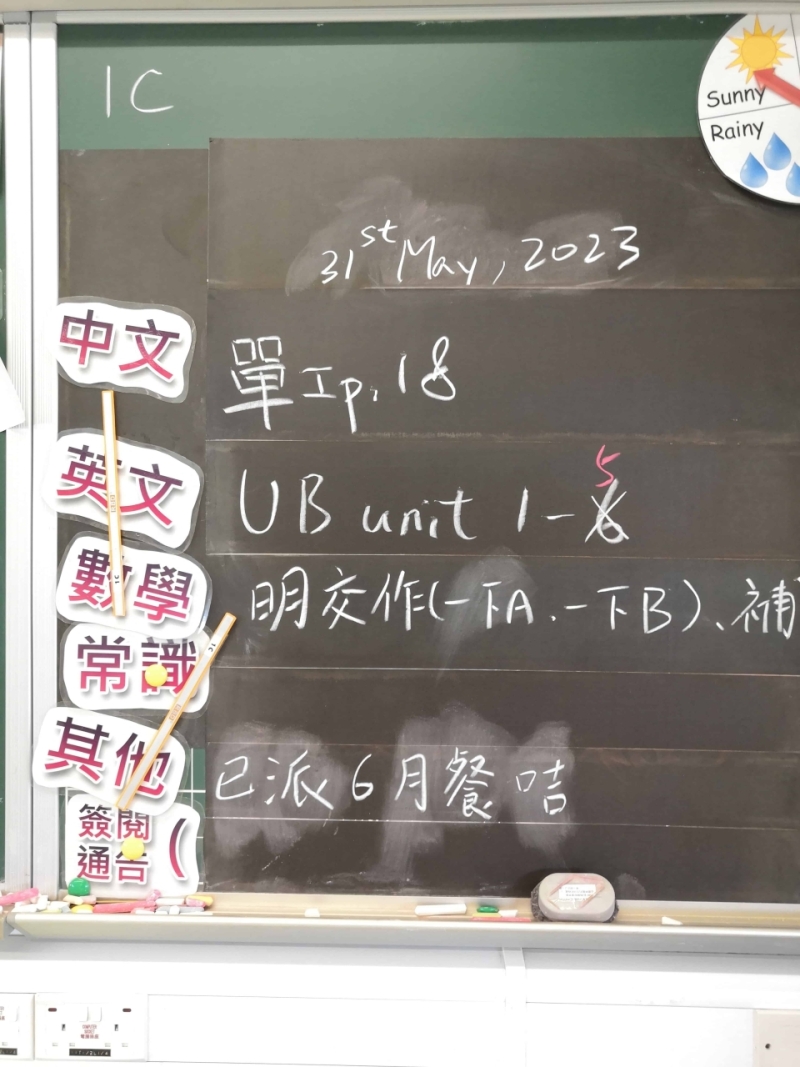 1C
Sunny
Rainy
31st May, 2023
中文 單工p.18
英文 UB unit 1-5
數學 明交作(一下A、一下B)、補
常識
其他 已派6月餐咭
簽閱通告(